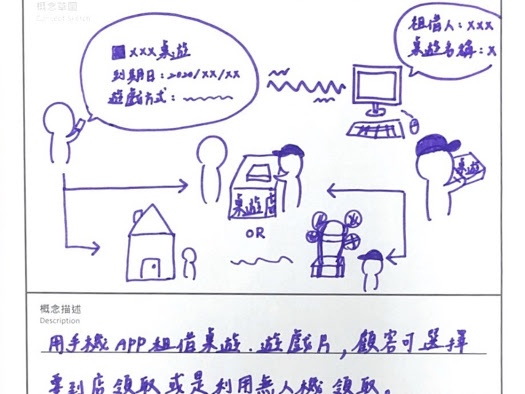 概念草圖
Concept Sketch
xxx桌遊
到期日：2020/xx/xx
遊戲方式：
租借人：xxx
桌遊名稱：x
桌遊
桌遊店
OR
概念描述
Description
用手機APP租借桌遊．遊戲片，顧客可選擇
要到店領取或是利用無人機領取。